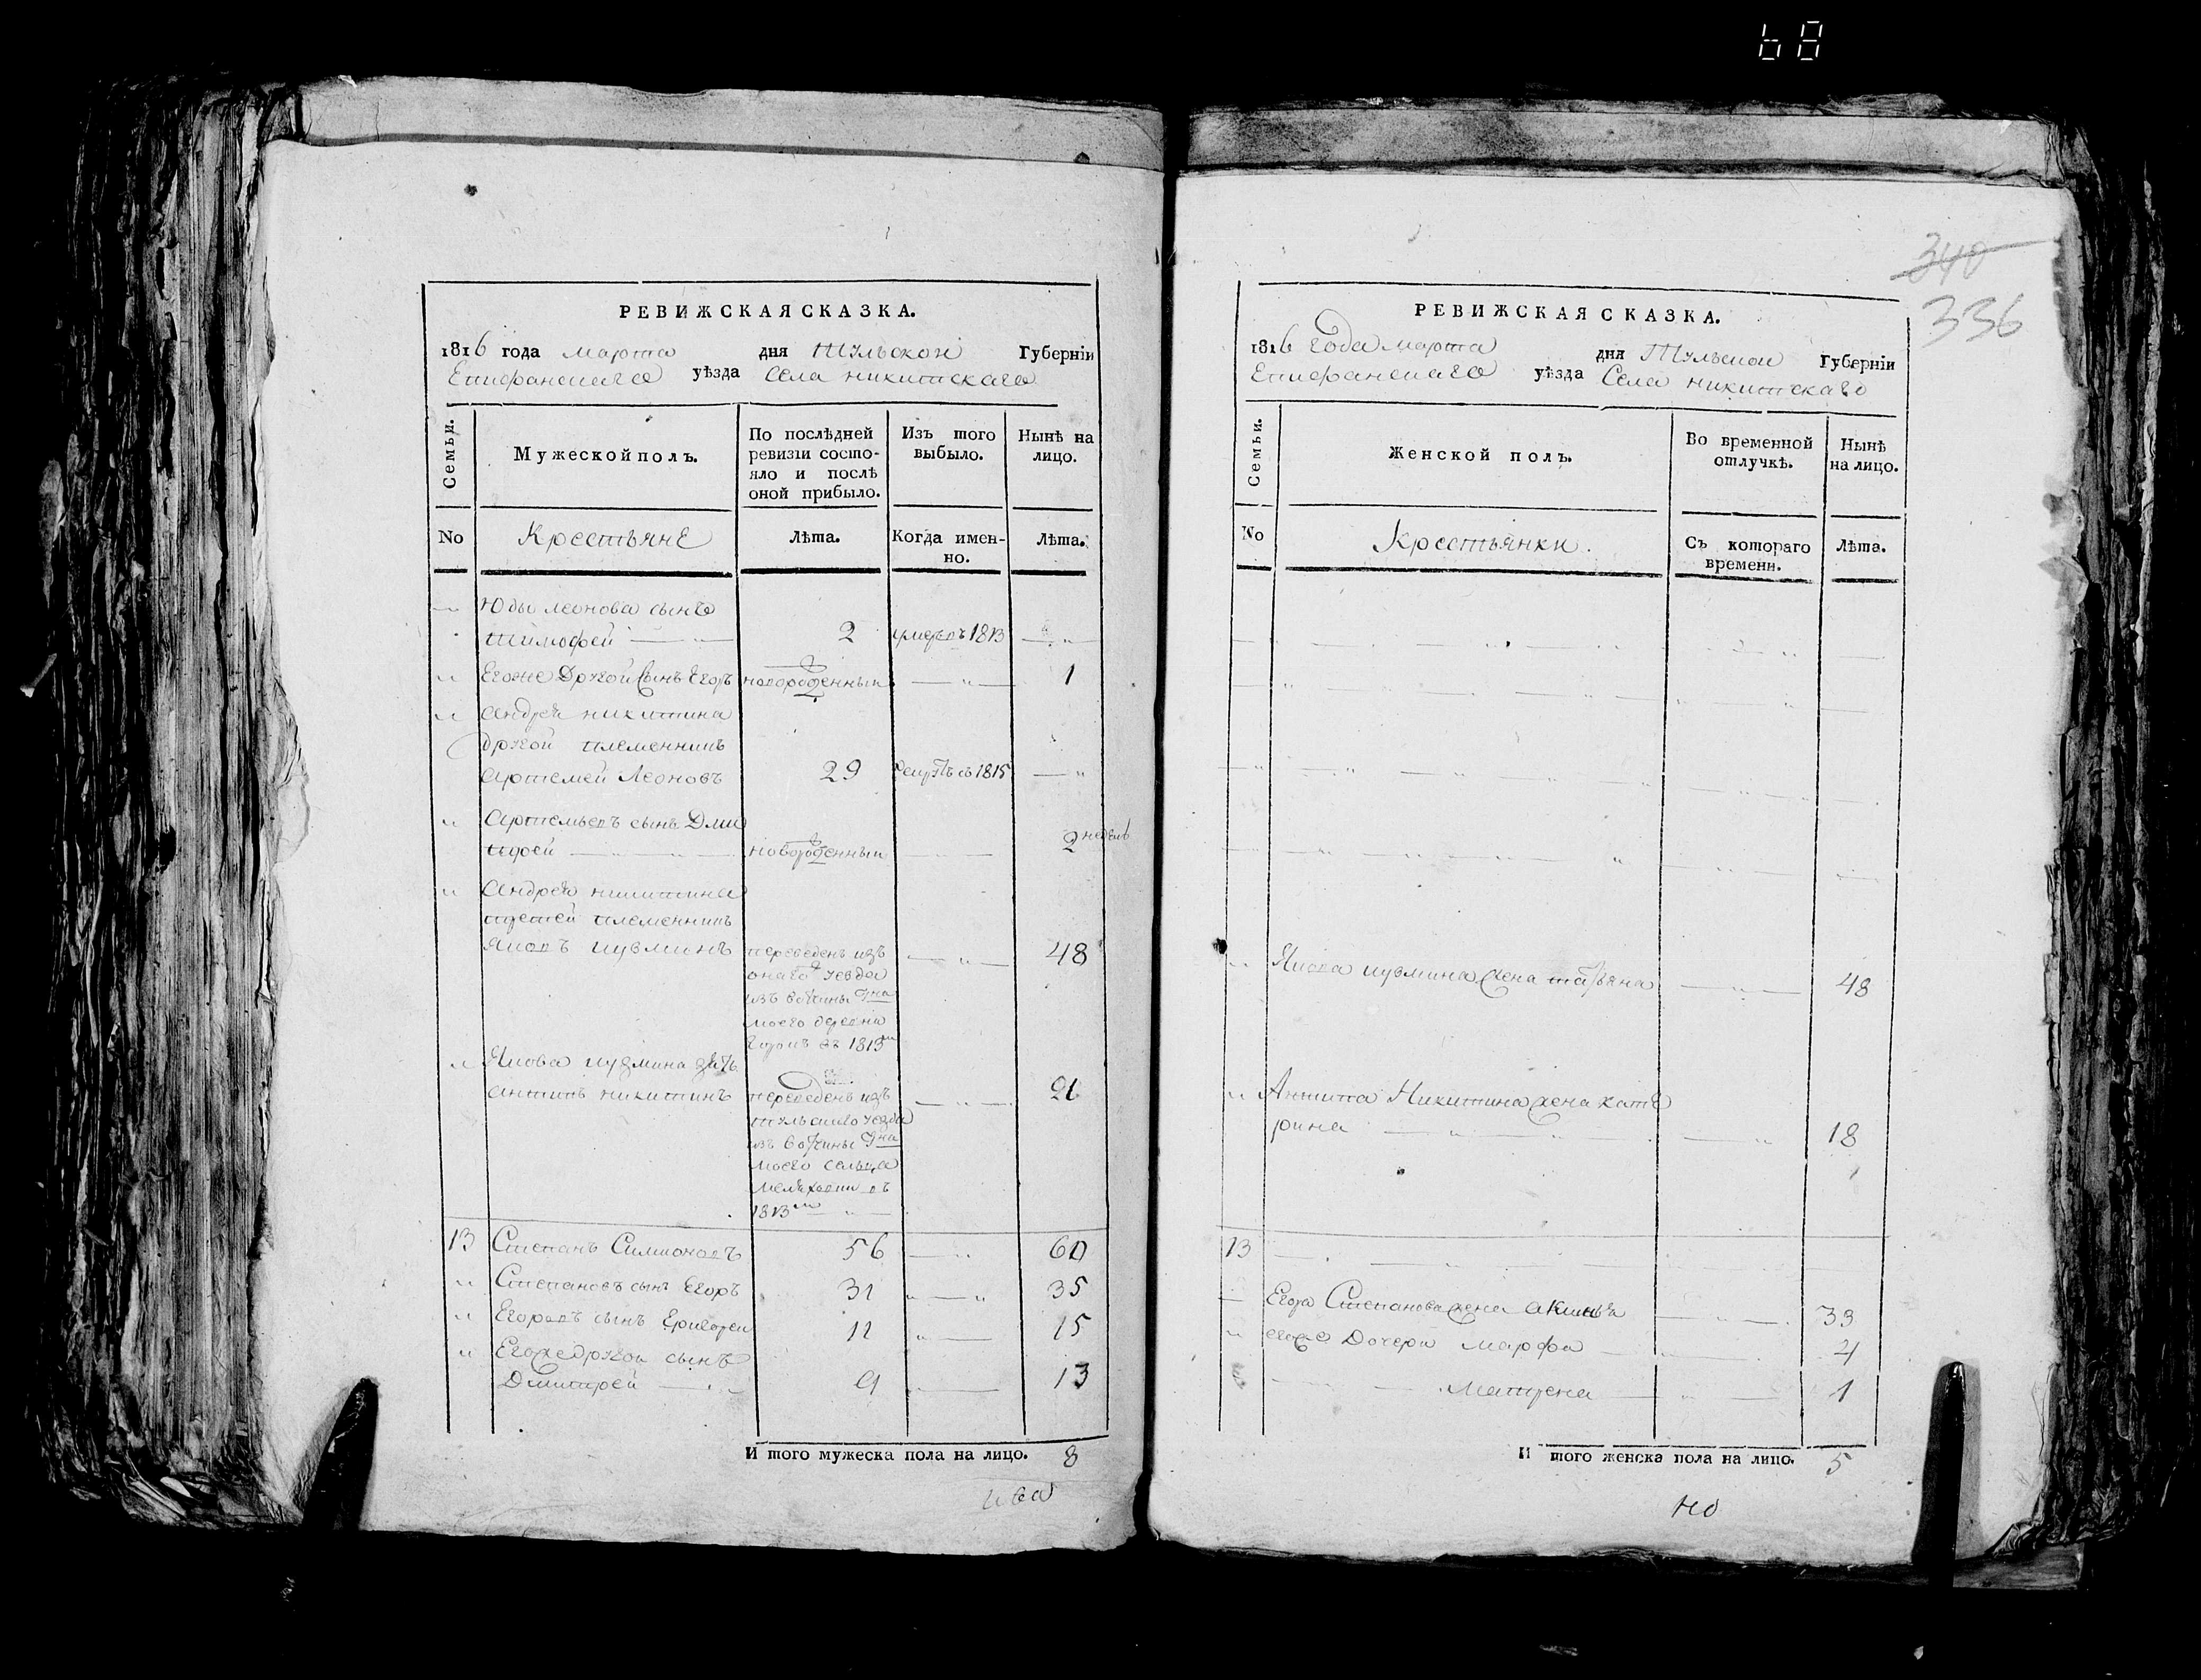 68
РЕВИЖСКАЯ СКАЗКА.
1816 года марта дня Тульской Губерніи
Епифанскаго уѣзда Села никитскаго
Семьи.
Мужеской полъ.
По послѣдней ревизіи состояло и послѣ оной прибыло.
Изъ того выбыло.
Нынѣ на лицо.
No
Крестьяне
Лѣта.
Когда именно.
Лѣта.
Юды леонова сынъ
тимофей 2 умеръ въ 1813
Егоже Другой Сынъ Егоръ новорожденный 1
андрея никитина
другой племенникъ
артемей Леоновъ 29 1815
артемьевъ сынъ Дми
трей новорожденный 2 недель
андрея никитина
третей племенникъ
яковъ кузминъ переведенъ изъ 48
онаго уезда
изъ вотчины
моего деревни
въ 1813м
Якова кузмина зять
антипъ никитинъ переведенъ изъ 21
тульскаго уезда
изъ вотчины
моего сельца
въ
1813м
13 Степанъ Симионовъ 56 60
Степановъ сынъ Егоръ 31 35
Егоровъ сынъ Григорей 11 15
Егоже другой сынъ
Дмитрей 9 13
И того мужеска пола на лицо. 8
340
336
РЕВИЖСКАЯ СКАЗКА.
1816 Года марта дня Тульской Губерніи
Епифанскаго уѣзда Села никитскаго
Семьи.
Женской полъ.
Во временной отлучкѣ.
Нынѣ на лицо.
No
Крестьянки.
Съ котораго времени.
Лѣта.
Якова кузмина жена татьяна 48
Антипа Никитина жена кате
рина 18
13
Егора Степанова жена акилина 33
егоже Дочери марфа 4
матрена 1
И того женска пола на лицо. 5
но